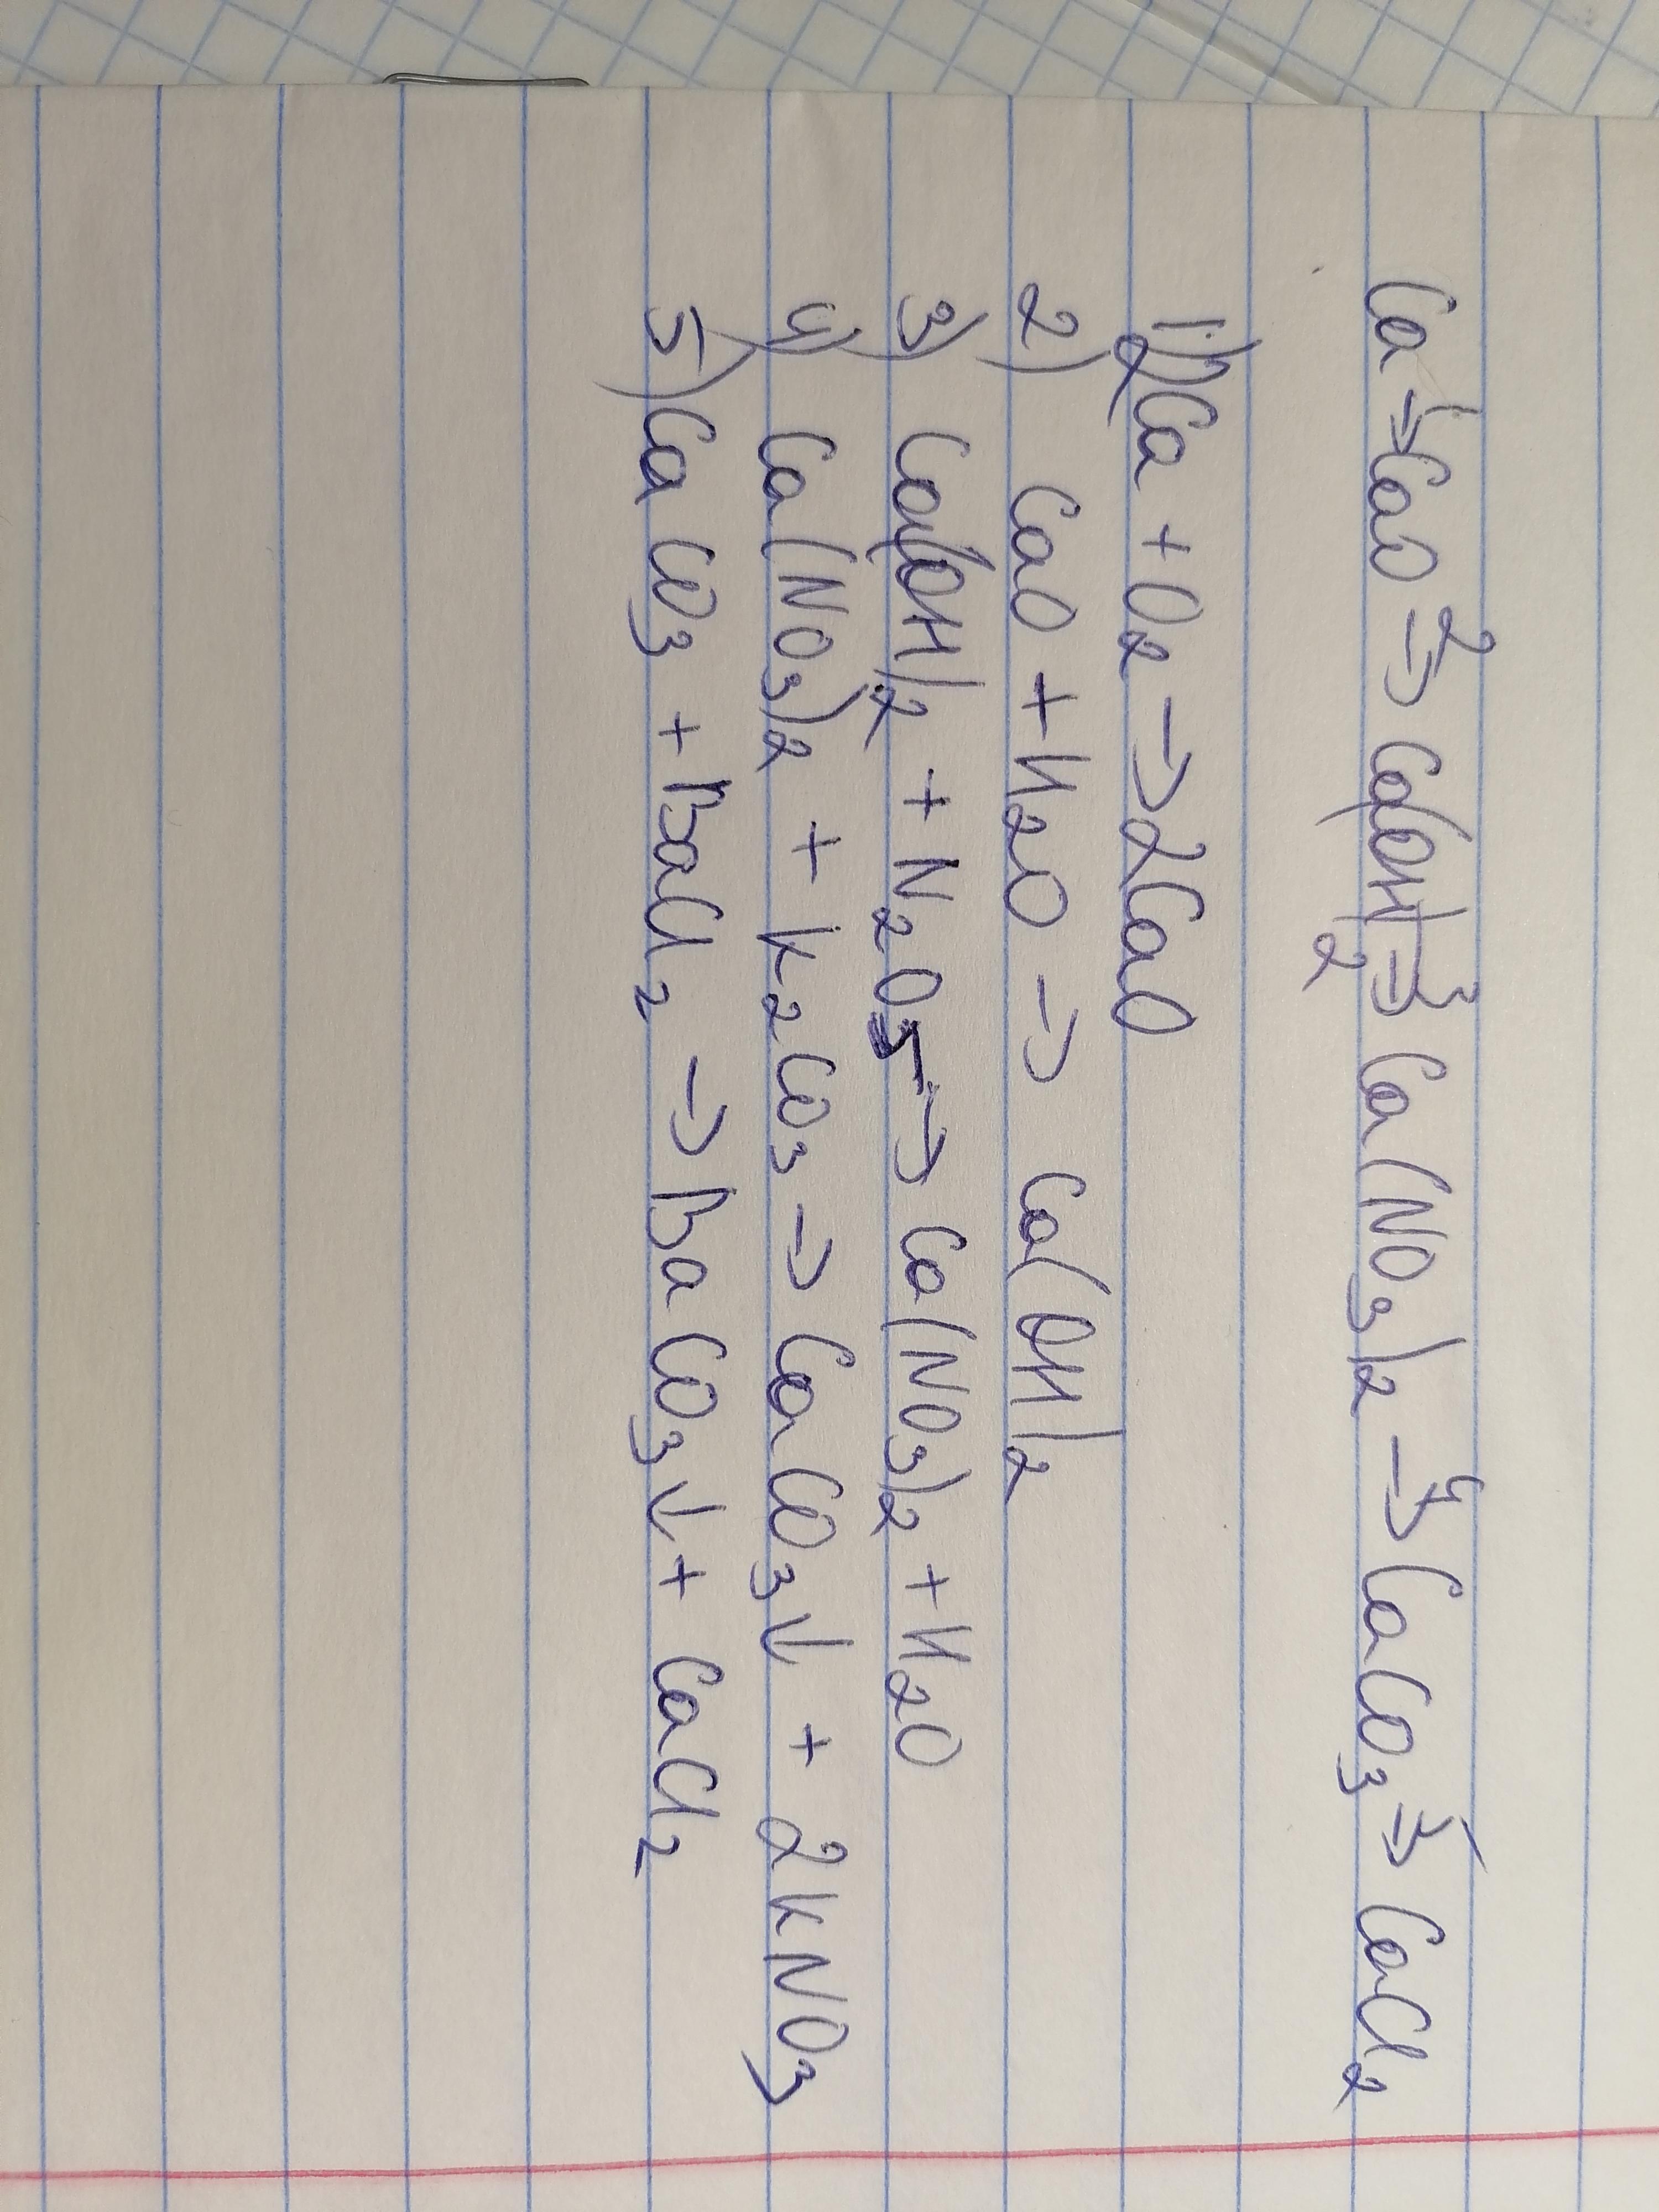 Ca →¹ CaO →² Ca(OH)₂ →³ Ca(NO₃)₂ →⁴ CaCO₃ →⁵ CaCl₂
1) 2Ca + O₂ → 2CaO
2) CaO + H₂O → Ca(OH)₂
3) Ca(OH)₂ + N₂O₅ → Ca(NO₃)₂ + H₂O
4) Ca(NO₃)₂ + K₂CO₃ → CaCO₃↓ + 2KNO₃
5) CaCO₃ + BaCl₂ → BaCO₃↓ + CaCl₂